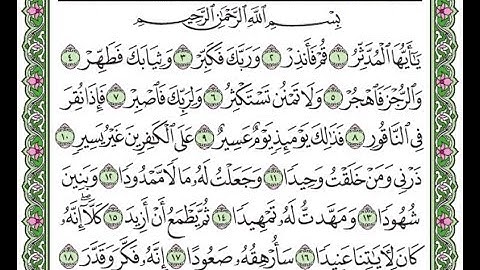 بِسْمِ اللَّهِ الرَّحْمَٰنِ الرَّحِيمِ
يَا أَيُّهَا الْمُدَّثِّرُ ١ قُمْ فَأَنذِرْ ٢ وَرَبَّكَ فَكَبِّرْ ٣ وَثِيَابَكَ فَطَهِّرْ ٤
وَالرُّجْزَ فَاهْجُرْ ٥ وَلَا تَمْنُن تَسْتَكْثِرُ ٦ وَلِرَبِّكَ فَاصْبِرْ ٧ فَإِذَا نُقِرَ
فِي النَّاقُورِ ٨ فَذَٰلِكَ يَوْمَئِذٍ يَوْمٌ عَسِيرٌ ٩ عَلَى الْكَٰفِرِينَ غَيْرُ يَسِيرٍ ١٠
ذَرْنِي وَمَنْ خَلَقْتُ وَحِيدًا ١١ وَجَعَلْتُ لَهُۥ مَالًا مَّمْدُودًا ١٢ وَبَنِينَ
شُهُودًا ١٣ وَمَهَّدتُّ لَهُۥ تَمْهِيدًا ١٤ ثُمَّ يَطْمَعُ أَنْ أَزِيدَ ١٥ كَلَّا إِنَّهُۥ
كَانَ لِءَايَٰتِنَا عَنِيدًا ١٦ سَأُرْهِقُهُۥ صَعُودًا ١٧ إِنَّهُۥ فَكَّرَ وَقَدَّرَ ١٨